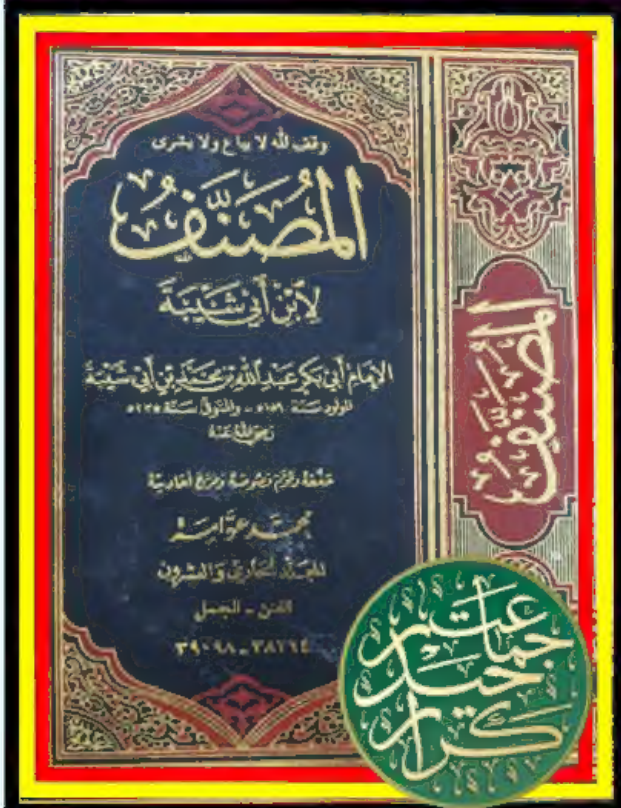 وقف لله لا يباع ولا يشرى
المُصَنَّفُ
لِابْنِ أَبِي شَيْبَةَ
الإمام أبي بكر عبد الله بن محمد بن أبي شيبة
المولود سنة ١٥٩هـ - والمتوفى سنة ٢٣٥هـ
رضي الله عنه
حققه وقوم نصوصه وخرج أحاديثه
محمد عوامة
المجلد الحادي والعشرون
الفتن - الجمل
٣٨٢٦٤ - ٣٩٠٩٨
المُصَنَّفُ
جماعت
حيدر
كرار